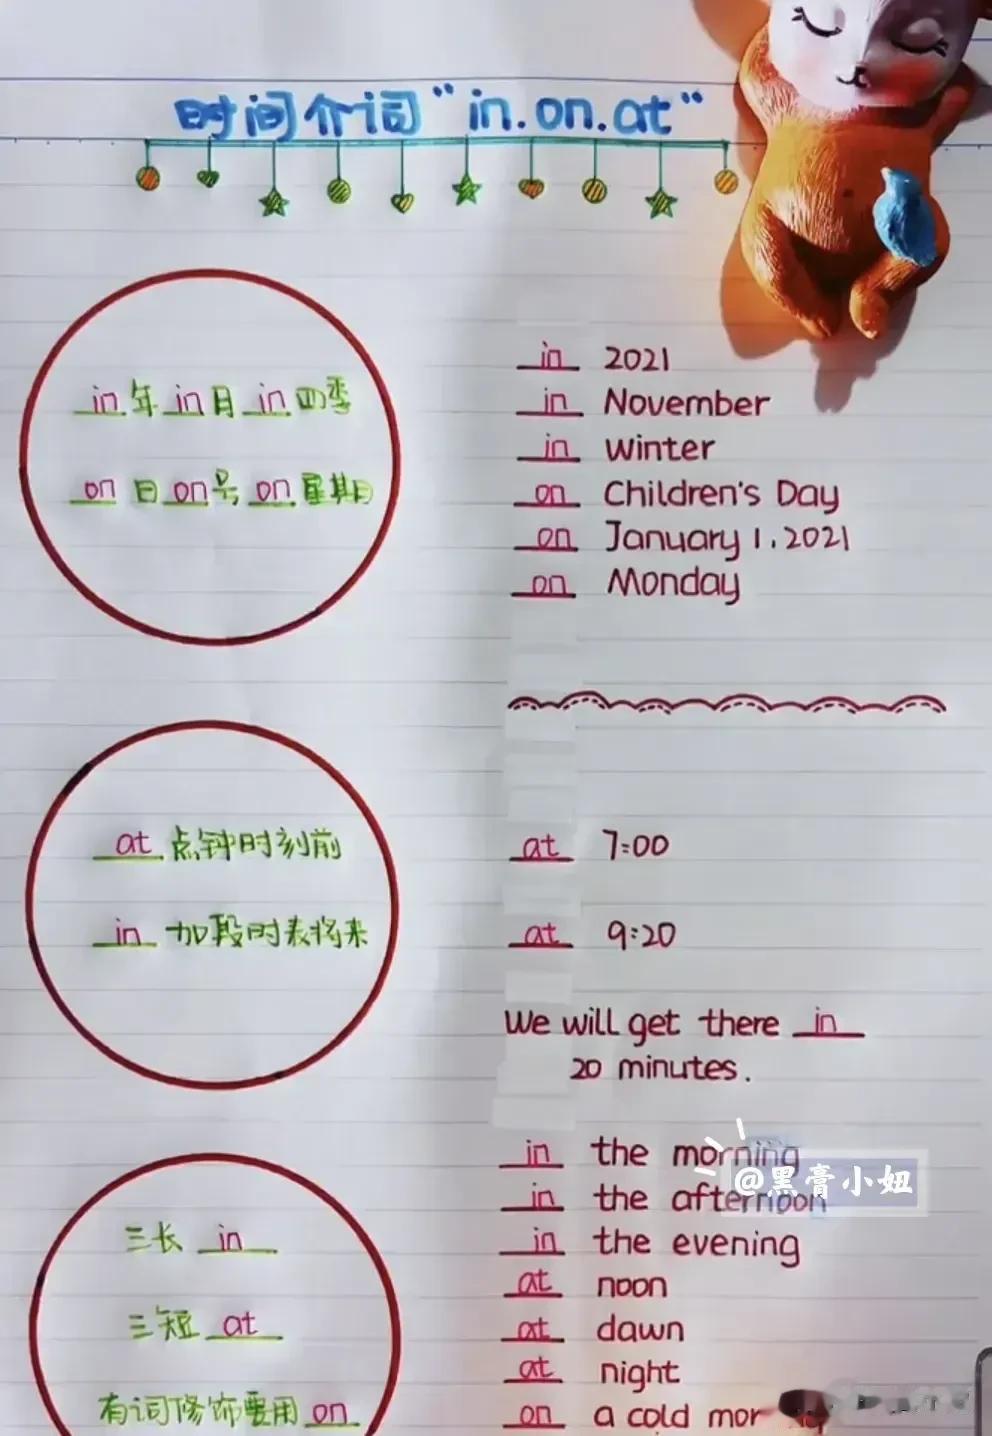 时间介词“in.on.at“
in 年 in 月 in 四季
on 日 on 号 on 星期
in 2021
in November
in winter
on Children's Day
on January 1, 2021
on Monday
at 点钟时刻前
in 加段时表将来
at 7:00
at 9:20
We will get there in
20 minutes.
三长 in
三短 at
有词修饰要用 on
in the morning
in the afternoon
in the evening
at noon
at dawn
at night
on a cold
@黑膏小妞